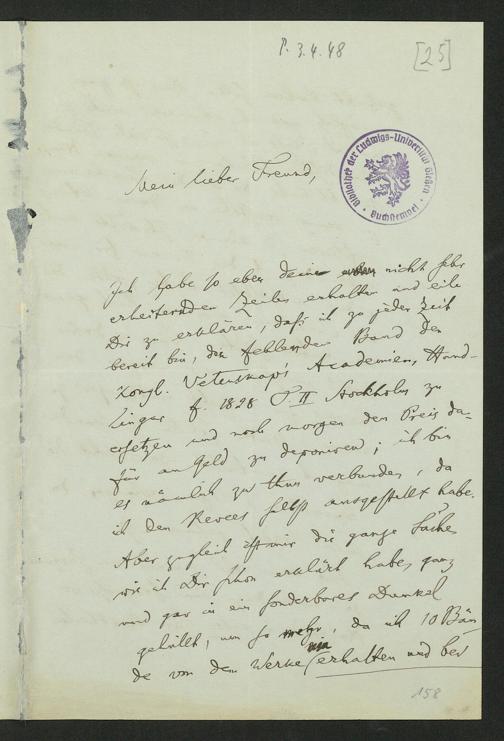 P. 3.4.48
[25]
Bibliothek der Ludwigs-Universität Gießen
Buchstempel
Mein lieber Freund,
Ich habe so eben deine nicht sehr
erheiternden Zeilen erhalten und eile
Dir zu erklären, daß ich zu jeder Zeit
bereit bin, den fehlenden Band der
Kongl. Vetenskaps Academien, Hand-
linger f. 1828 Stockholm zu
ersetzen und noch morgen den Preis da-
für an Geld zu deponiren; ich bin
es nämlich zu thun verbunden, da
ich den Revers selbst ausgestellt habe.
Aber zugleich ist mir die ganze Sache
wie ich Dir schon erklärt habe, ganz
und gar in ein sonderbares Dunkel
gehüllt, um so mehr, da ich 10 Bän
de von dem Werke nur erhalten und bes
158